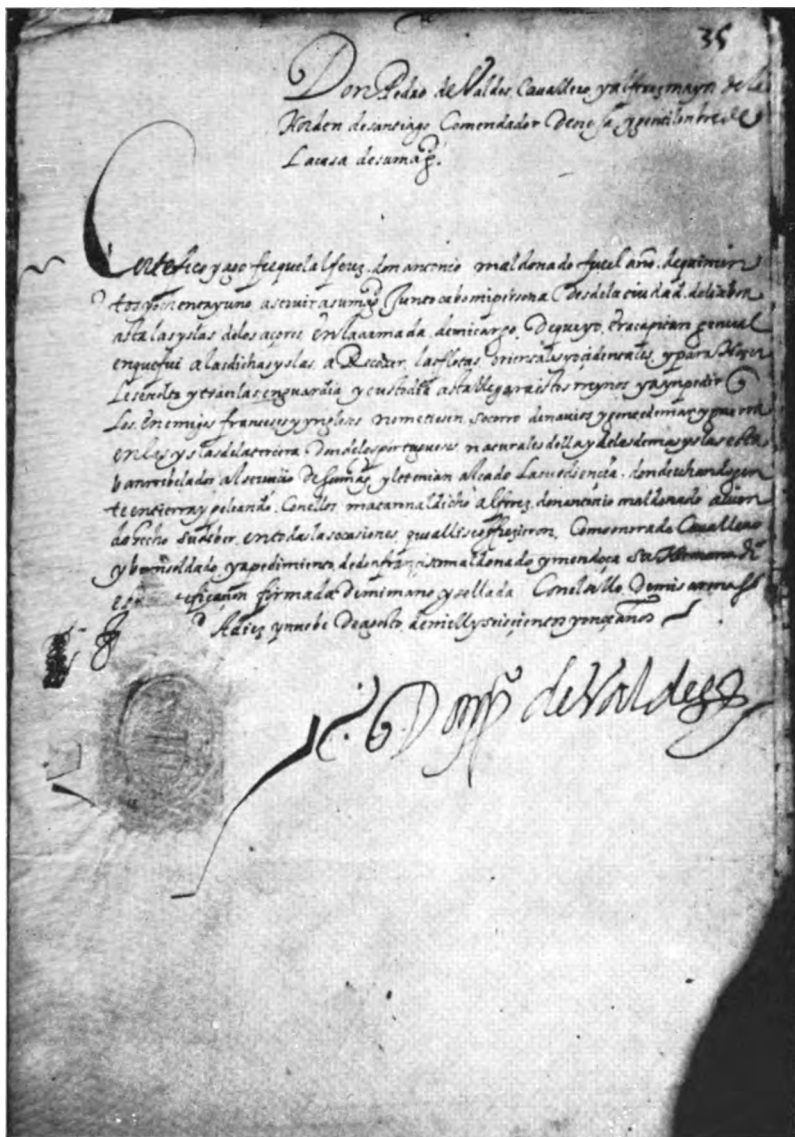 35
Don Pedro de Valdes, Cavallero, y alferez mayor de la
Horden de santiago Comendador de oreja, y gentilonbre de
La casa de su mag.
Certefico y doy fee que el alferez don antonio maldonado fue el año de quinien
tos y ochenta y uno a servir a su mag. Junto cabo mi persona Desde la ciudad de lisboa
asta las yslas de los açores en la armada de mi cargo, De que yo era capitan general
en que fui a las dichas yslas, a Recoxer, las flotas orientales y ocidentales, y para Hazer
Les escolta y traerlas en guardia y custodia asta llegar a estos reynos y a ynpedir q
Los enemigos franceses y yngleses no metiesen socorro de navios y gente de mar y guerra
en las yslas de la tercera Donde los portugueses naturales della y de las demas yslas esta
ban rrebelados al servicio de su mag. y le tenian alçado La obediencia. donde echando gen
te en tierra y peleando Con ellos, mataron al dicho alferez, don antonio maldonado aviendo
do hecho su deber, en todas las ocasiones, que alli se ofrezieron, Como onrado Cavallero
y buen soldado y a pedimiento de don francisco maldonado y mendoça su Hermano di
esta certificaçion firmada de mi mano, y sellada Con el sello De mis armas
A diez y nuebe De agosto, de mill y seiscientos y onçe años
Don p.º de Valdes